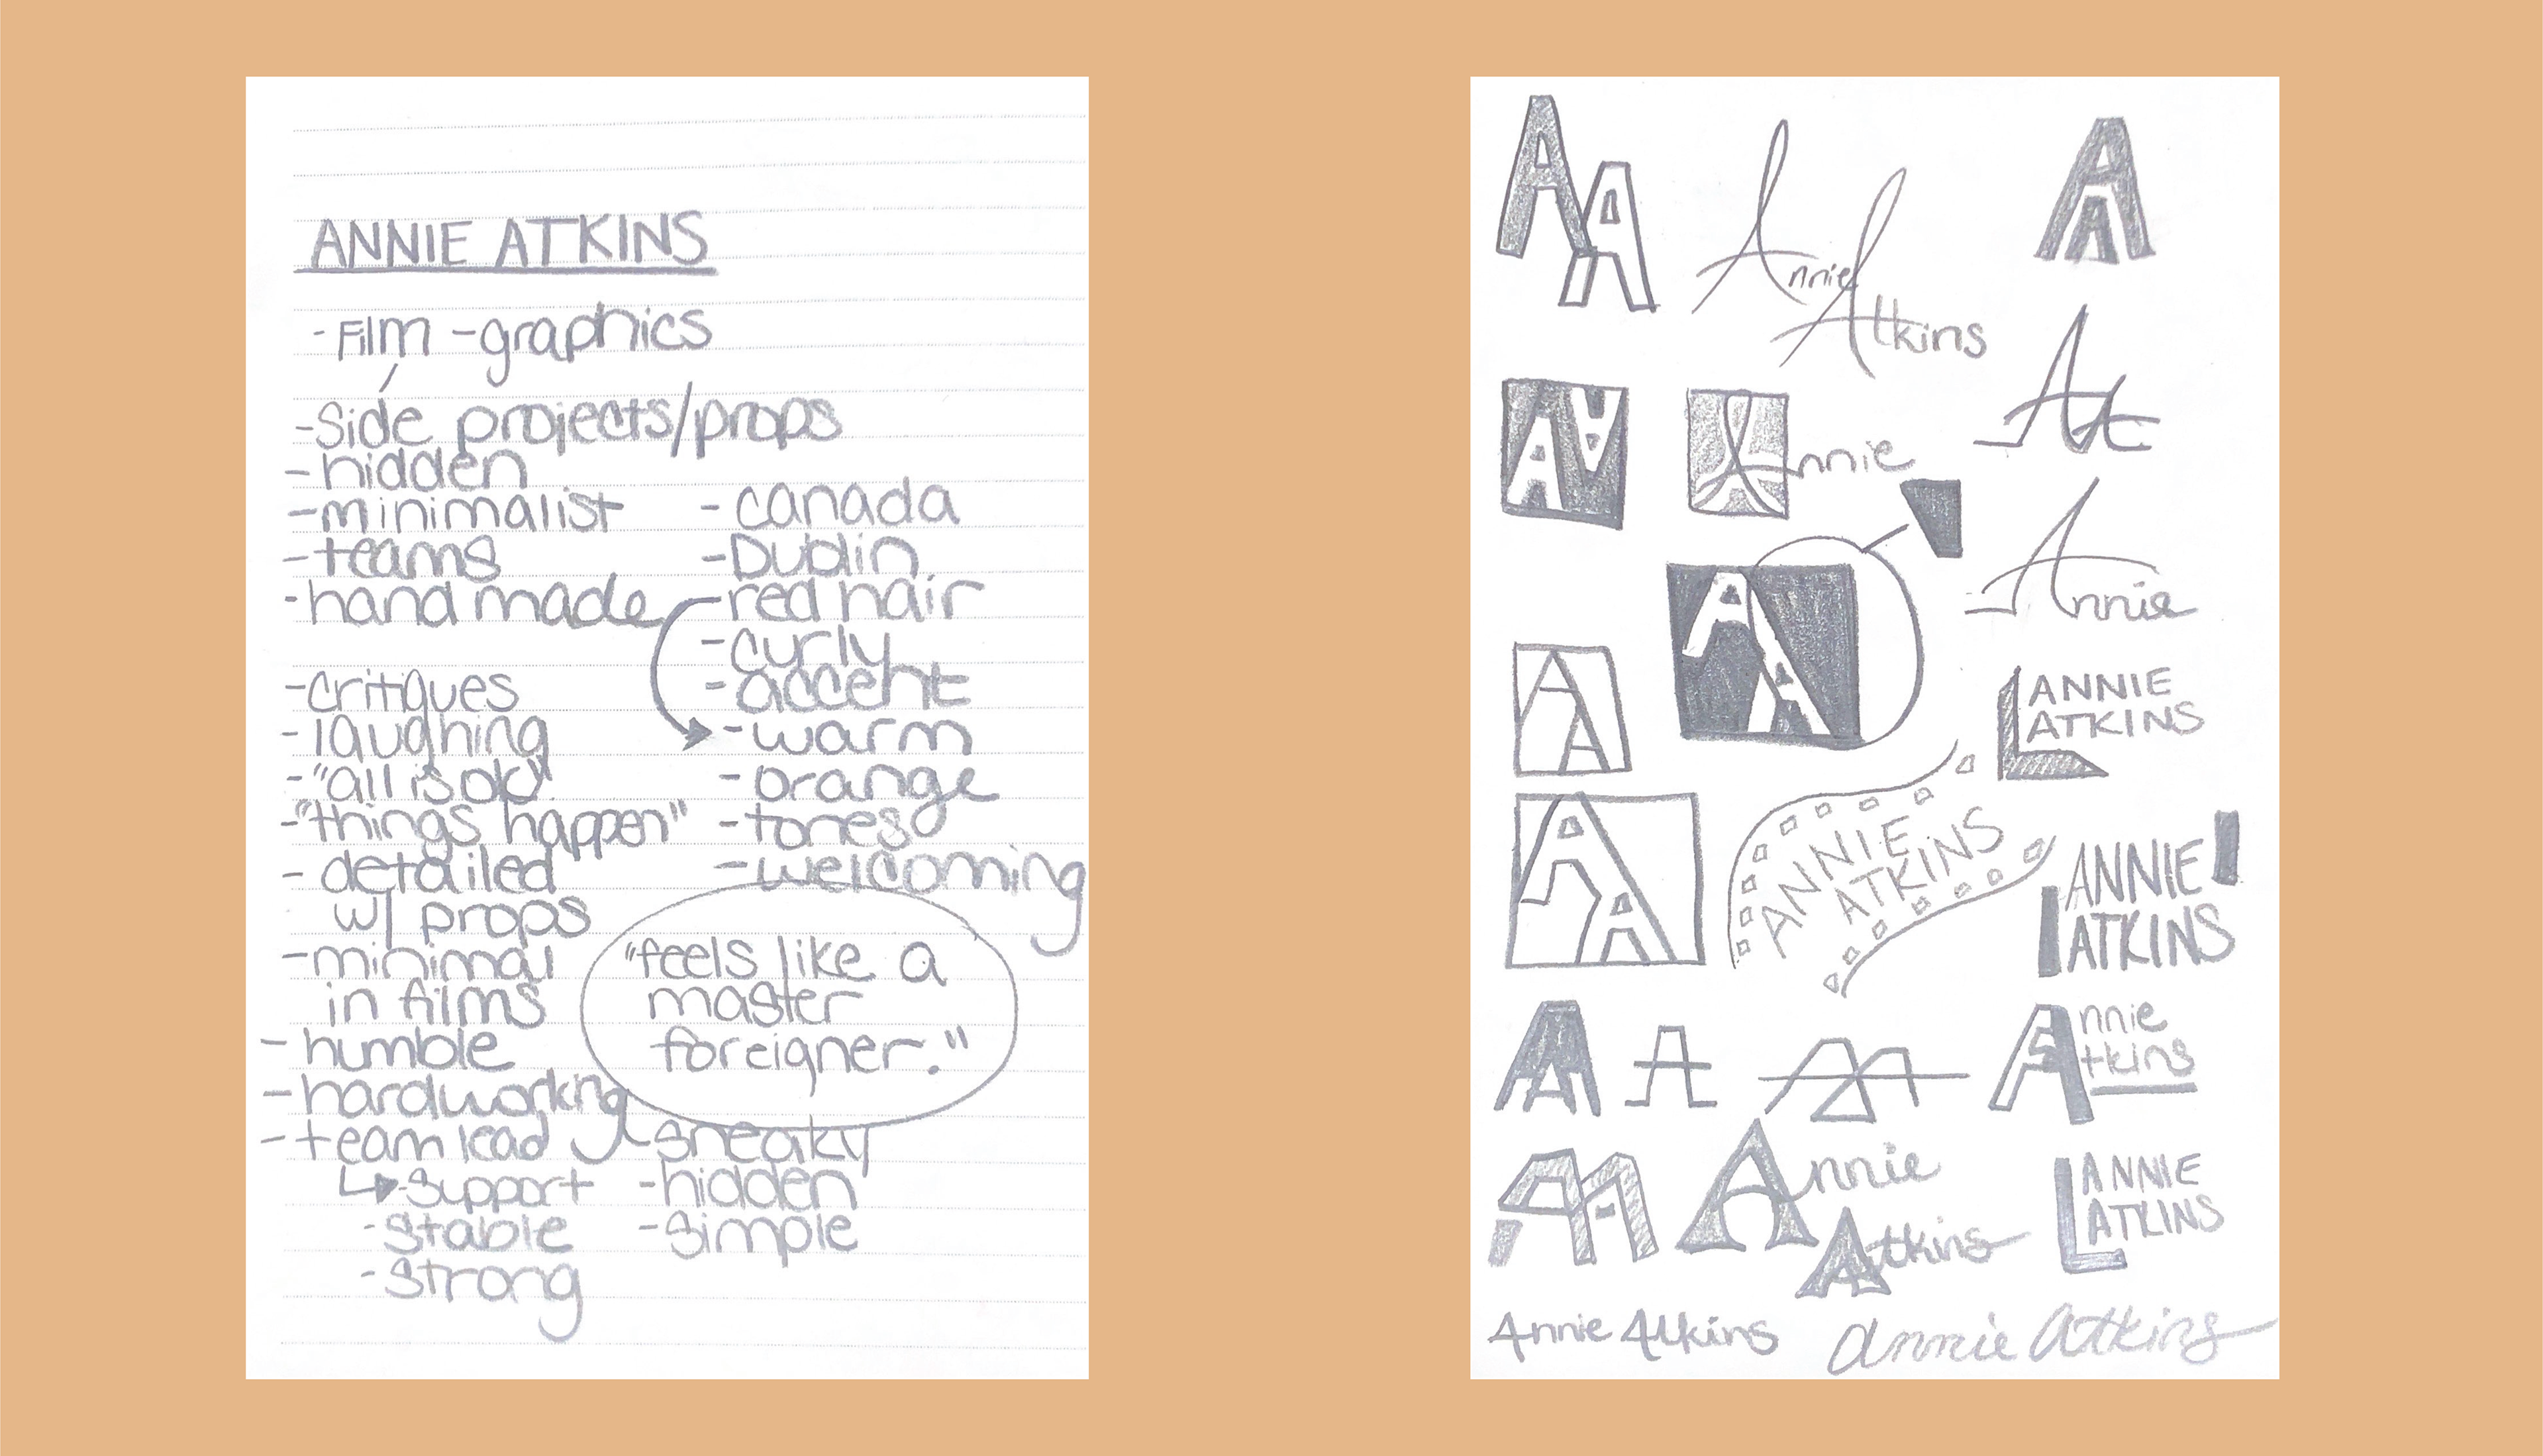 ANNIE ATKINS
-Film -graphics
-Side projects/props
-hidden
-minimalist
-teams
-hand made
-critiques
-laughing
-"all is ok"
-"things happen"
- detailed
w/ props
-minimal
in films
- humble
-hardworking
-team lead
-support
-stable
-strong
-canada
-Dublin
-red hair
-curly
-accent
-warm
-orange
-tones
-welcoming
"feels like a
master
foreigner."
-sneaky
-hidden
-simple
AA
Annie
Atkins
AA
At
AA
Annie
Annie
AA
AA
ANNIE
ATKINS
AA
ANNIE
ATKINS
ANNIE
ATKINS
AA
A
AA
Annie
Atkins
AA
Annie
Atkins
ANNIE
ATKINS
Annie Atkins
Annie Atkins